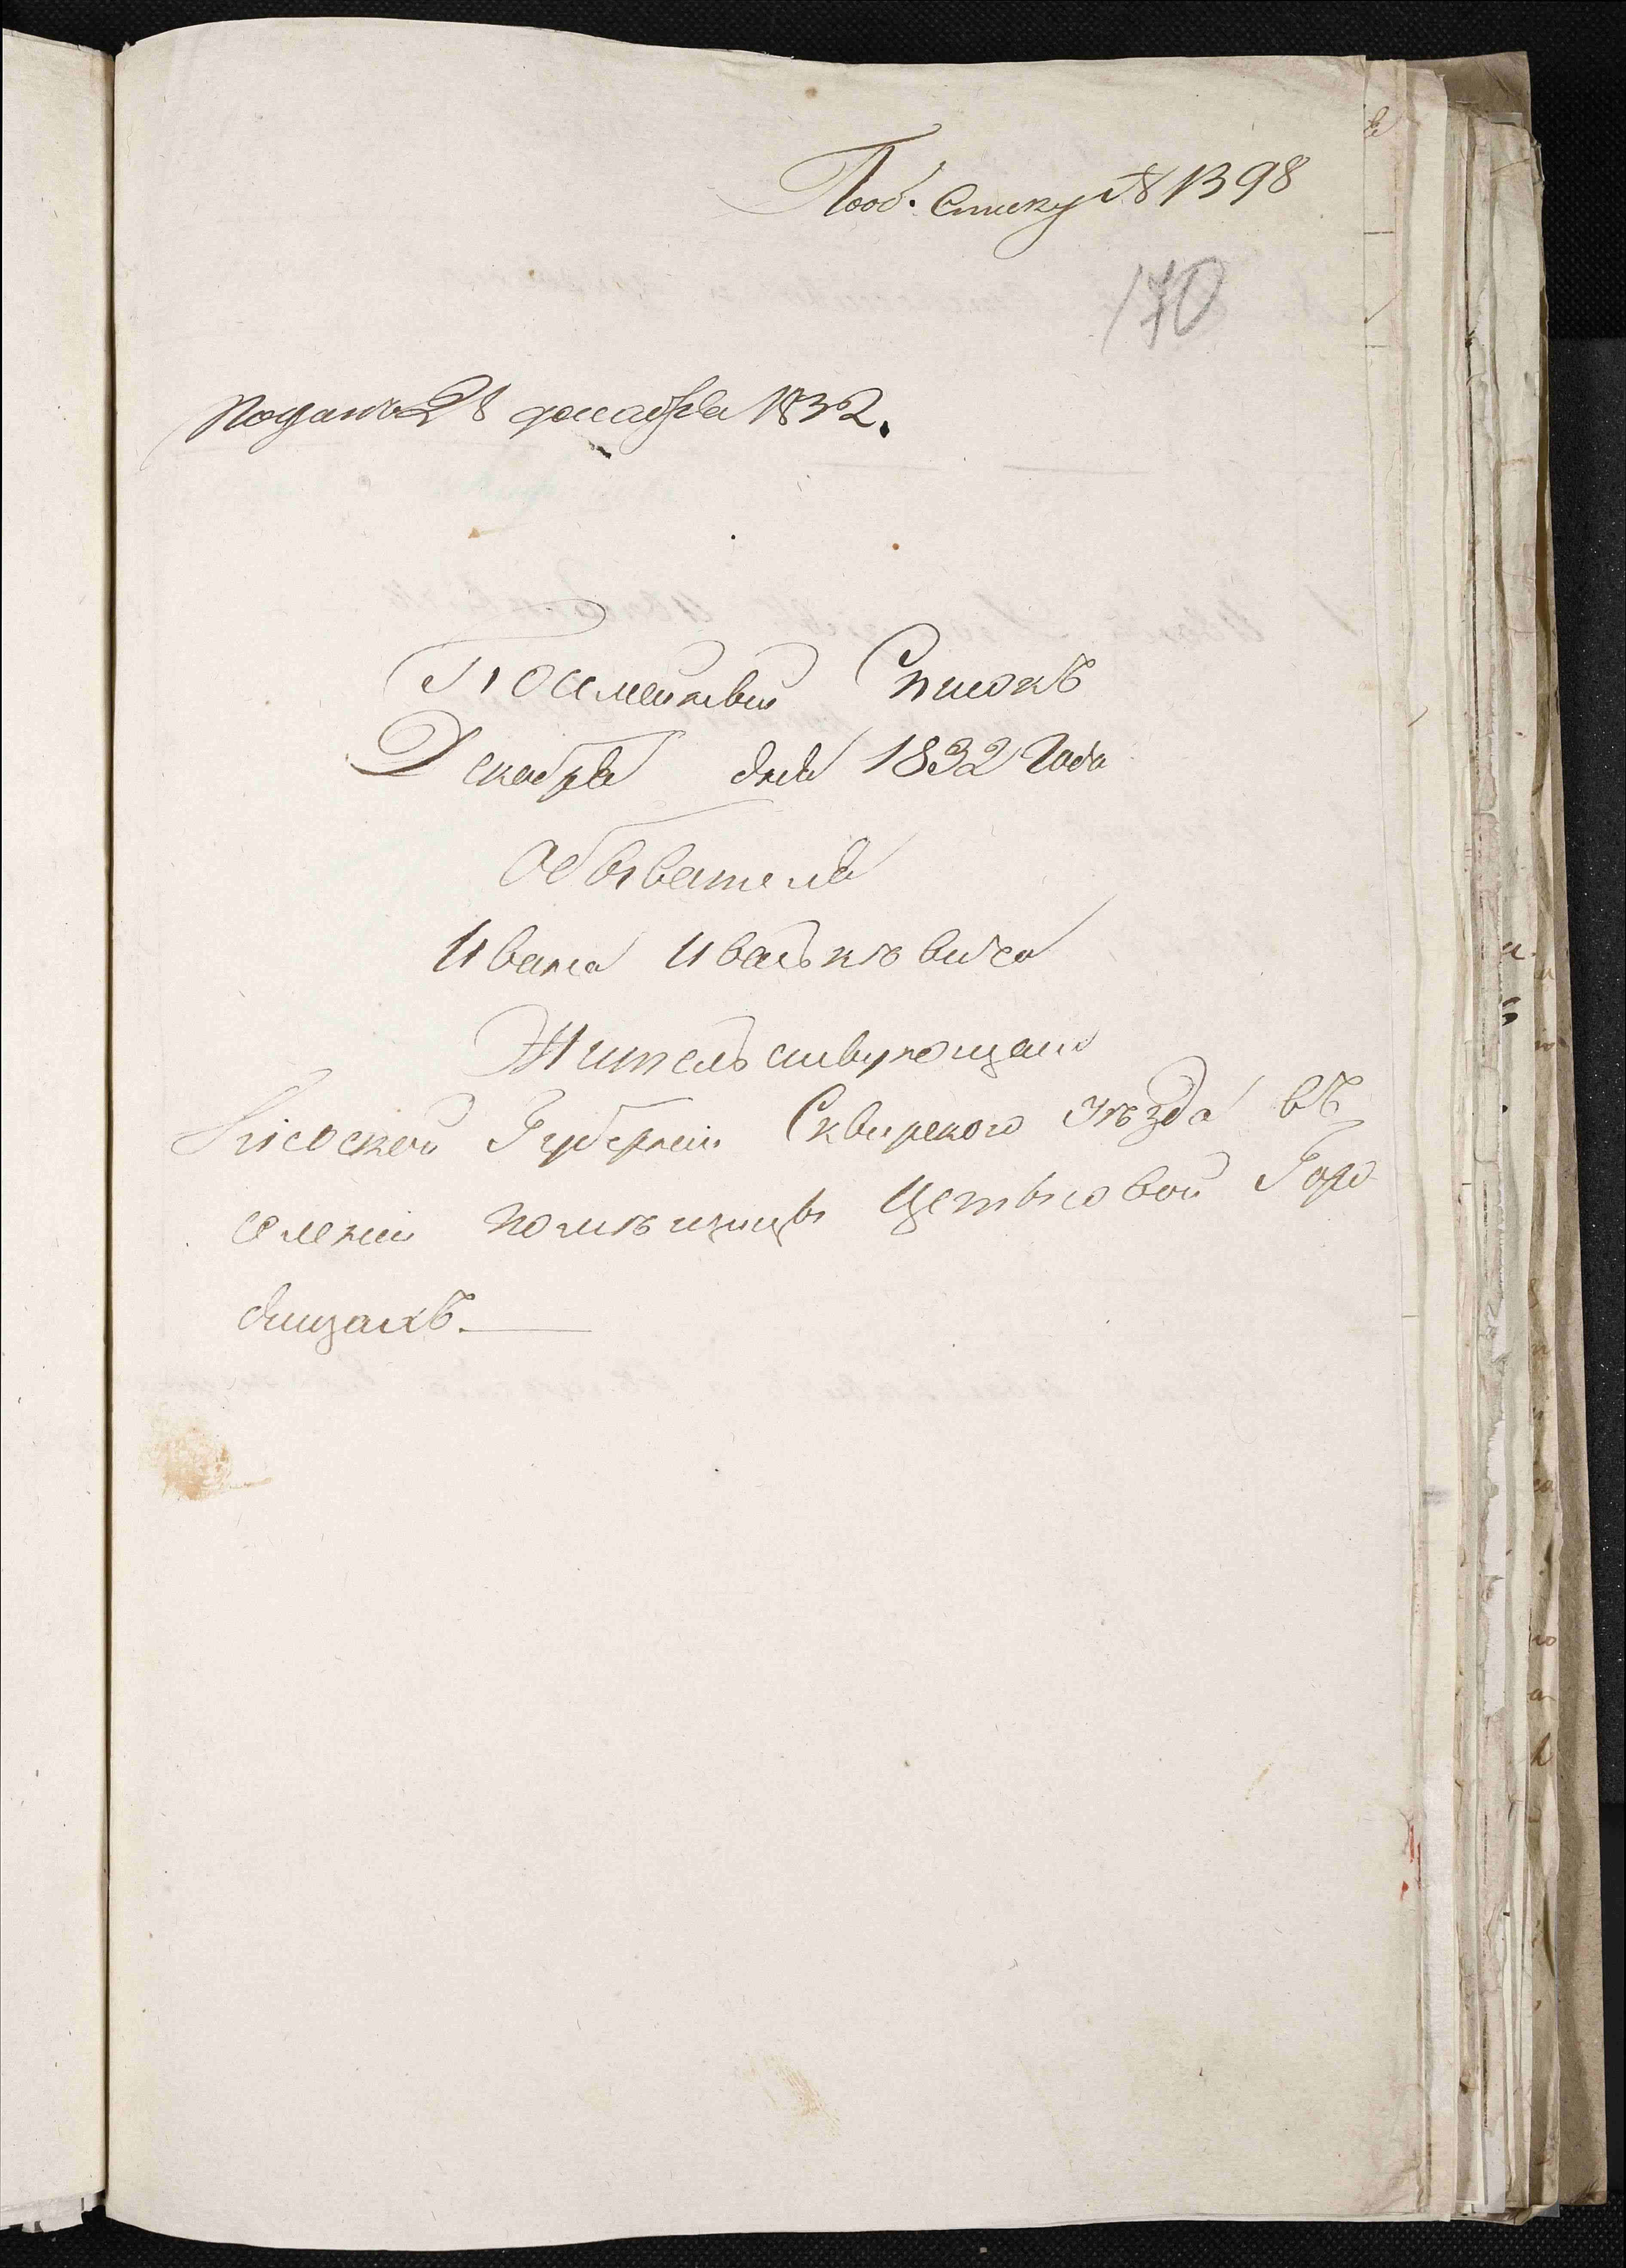 Пооб. списку № 1398
170
Поданъ 28 декабря 1832.
Посемейный Списокъ
Декабря дня 1832 года
Обывателя
Ивана Иваськевича
Жительствующаго
Кіевской Губерніи Сквирского уѣзда въ
селеніи Горо
дищахъ.